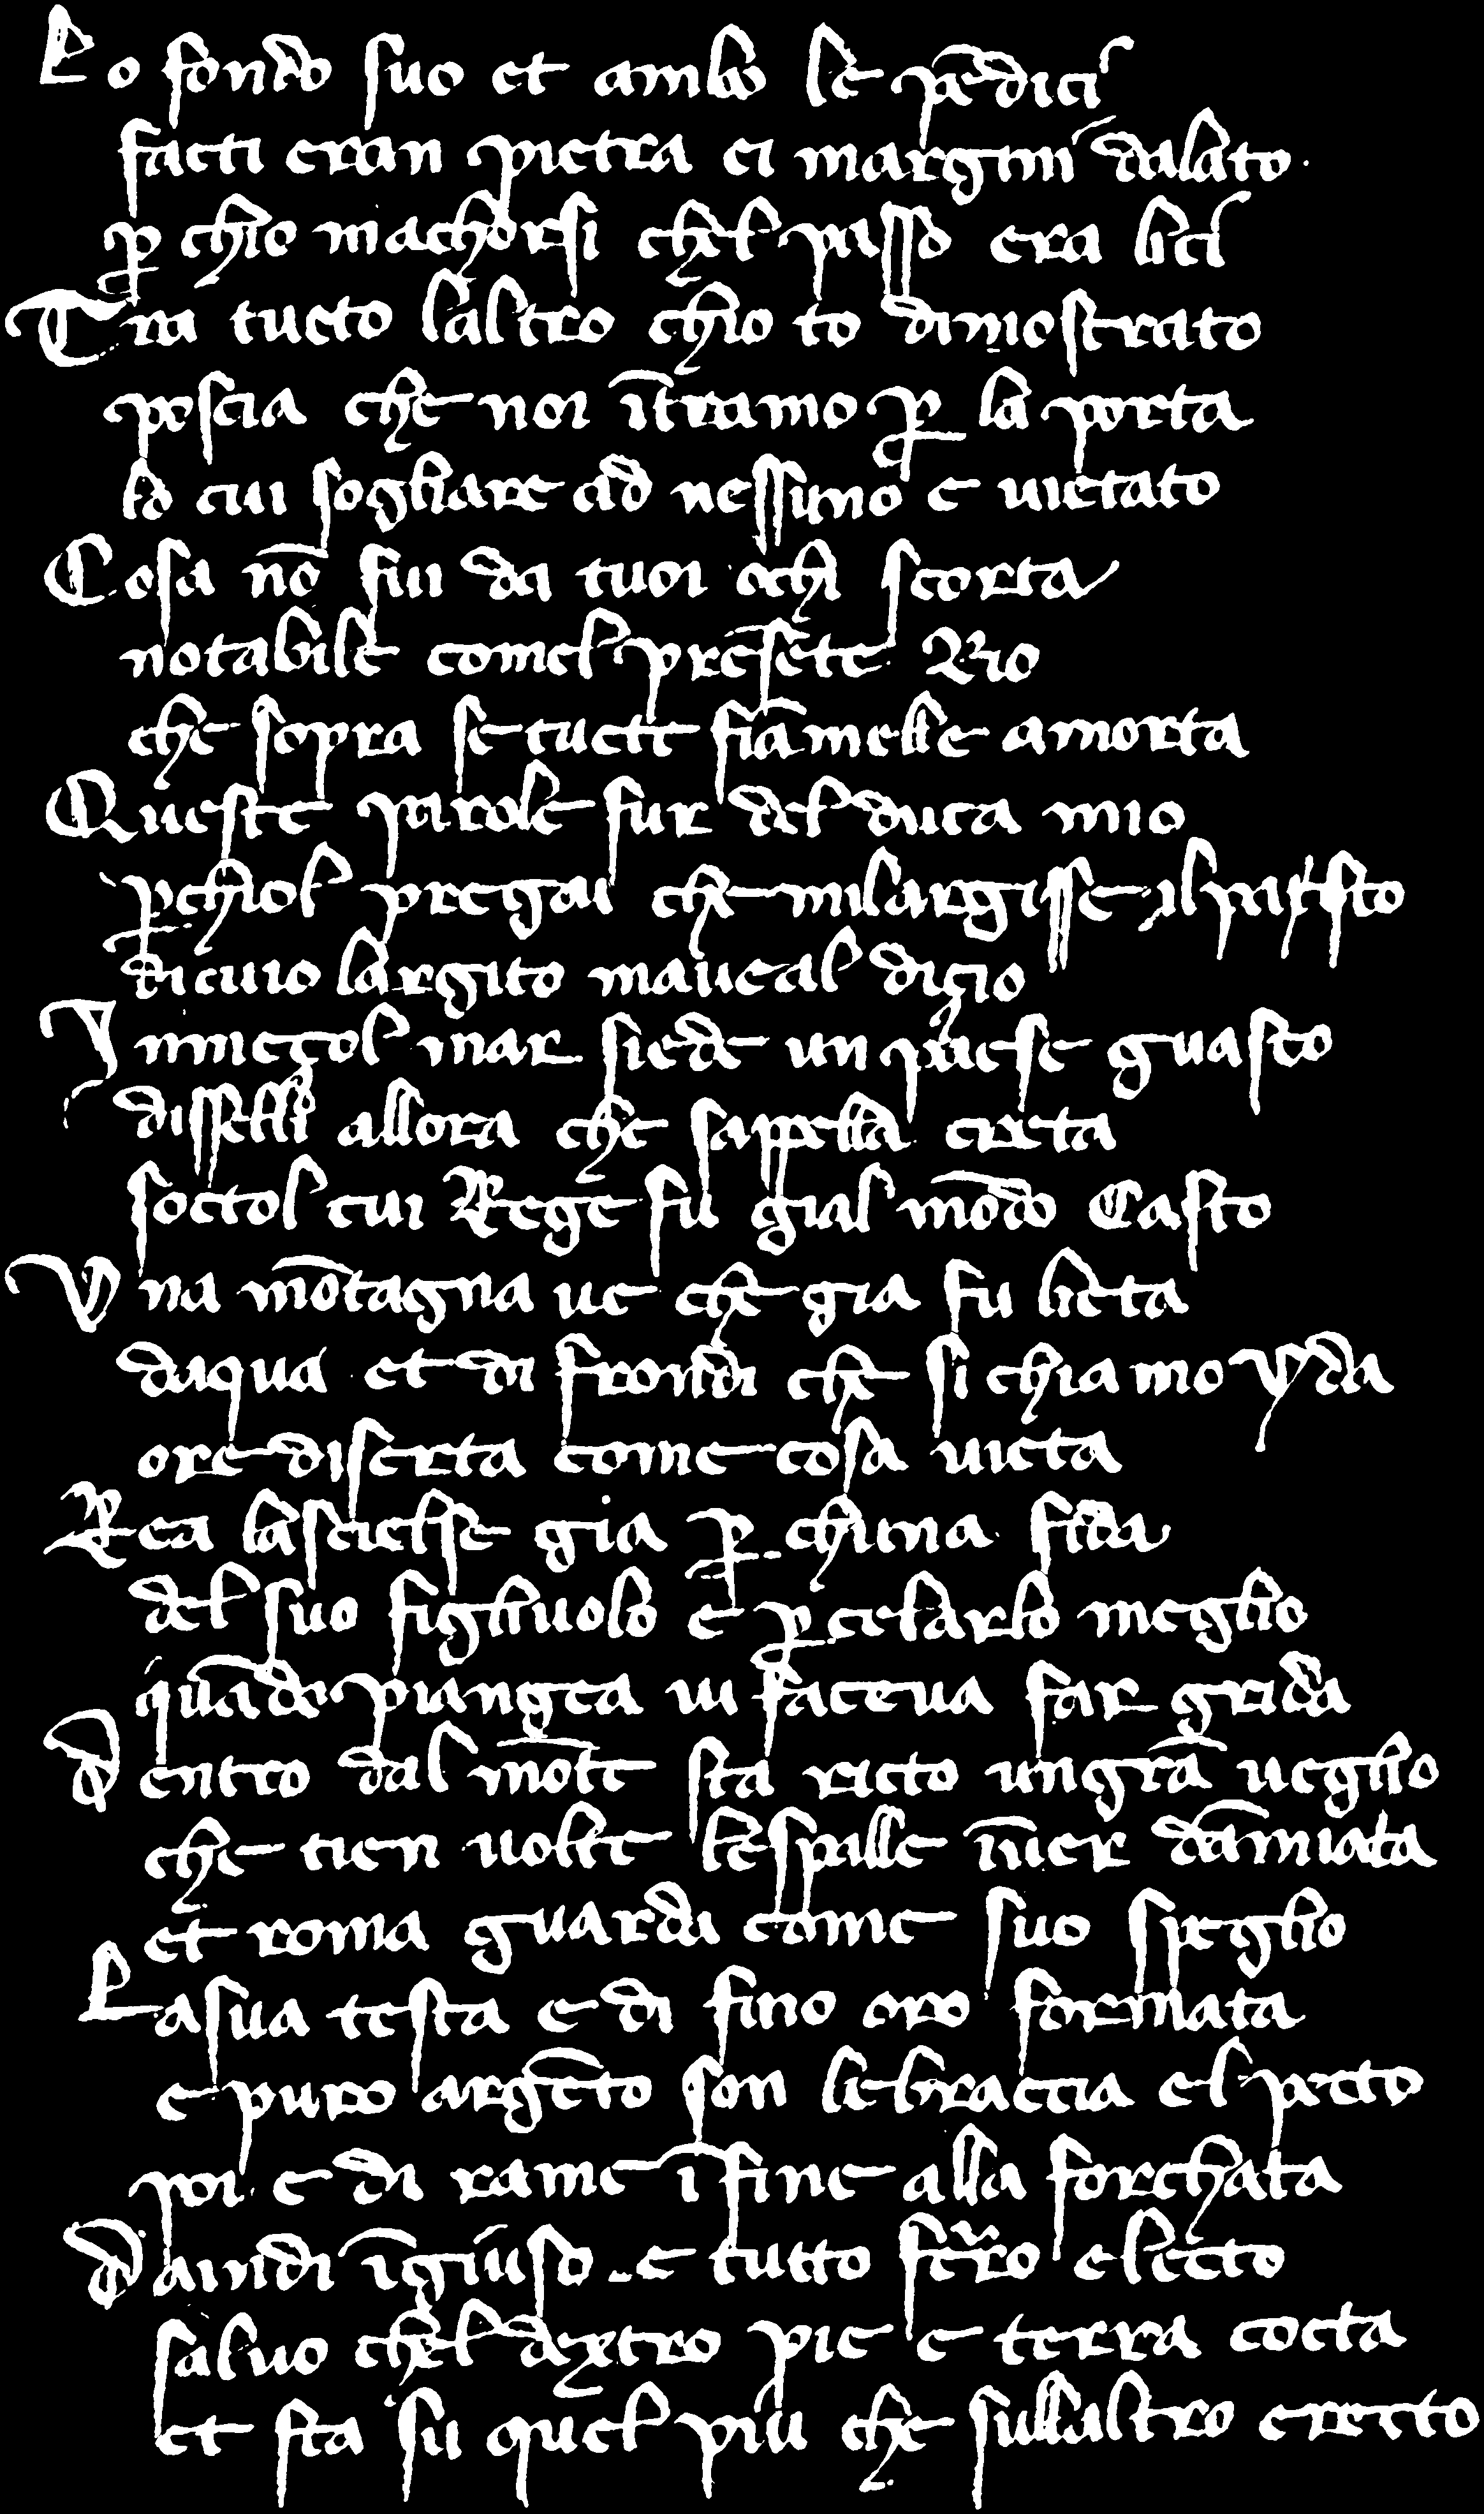 Lo fondo suo et ambo le pẽdici
facti eran pietra ei margini dalato.
ꝑ chio machorsi chel passo era lici
Tra tucto laltro chio to dimostrato
poscia che noi ĩtramo ꝑ la porta
lo cui sogliare ad nessuno e uietato
Cosa nõ fui da tuoi ochi scorta
notabile comel presẽte Rio
che sopra se tucte fiãmelle amorta
Queste parole fur del duca mio
ꝑchiol pregai che milargisse il pasto
di cuio largito maueal diçio
In meçol mar siede un paese guasto
disselli allora che sappella creta
soctol cui Rege fu gial mõdo Casto
Una mõtagna ue che gia fu lieta
daqua et di frondi che si chiamo yda
ore diserta come cosa uieta
Rea lascielse gia ꝑ chuna fida
del suo figliuolo e ꝑ celarlo meglio
quãdo piangea ui faceua far grida
Dentro dal mõte sta ricto un grã ueglio
che tien uolte le spalle ĩuer dãmiata
et roma guarda come suo speglio
La sua testa e di fino oro formata
e puro argẽto son le braccia el pecto
poi e di rame ĩfine alla forchata
Da indi ĩgiuso e tutto ferro electo
saluo chel dextro pie e terra cocta
et sta su quel piu che sullaltro erecto